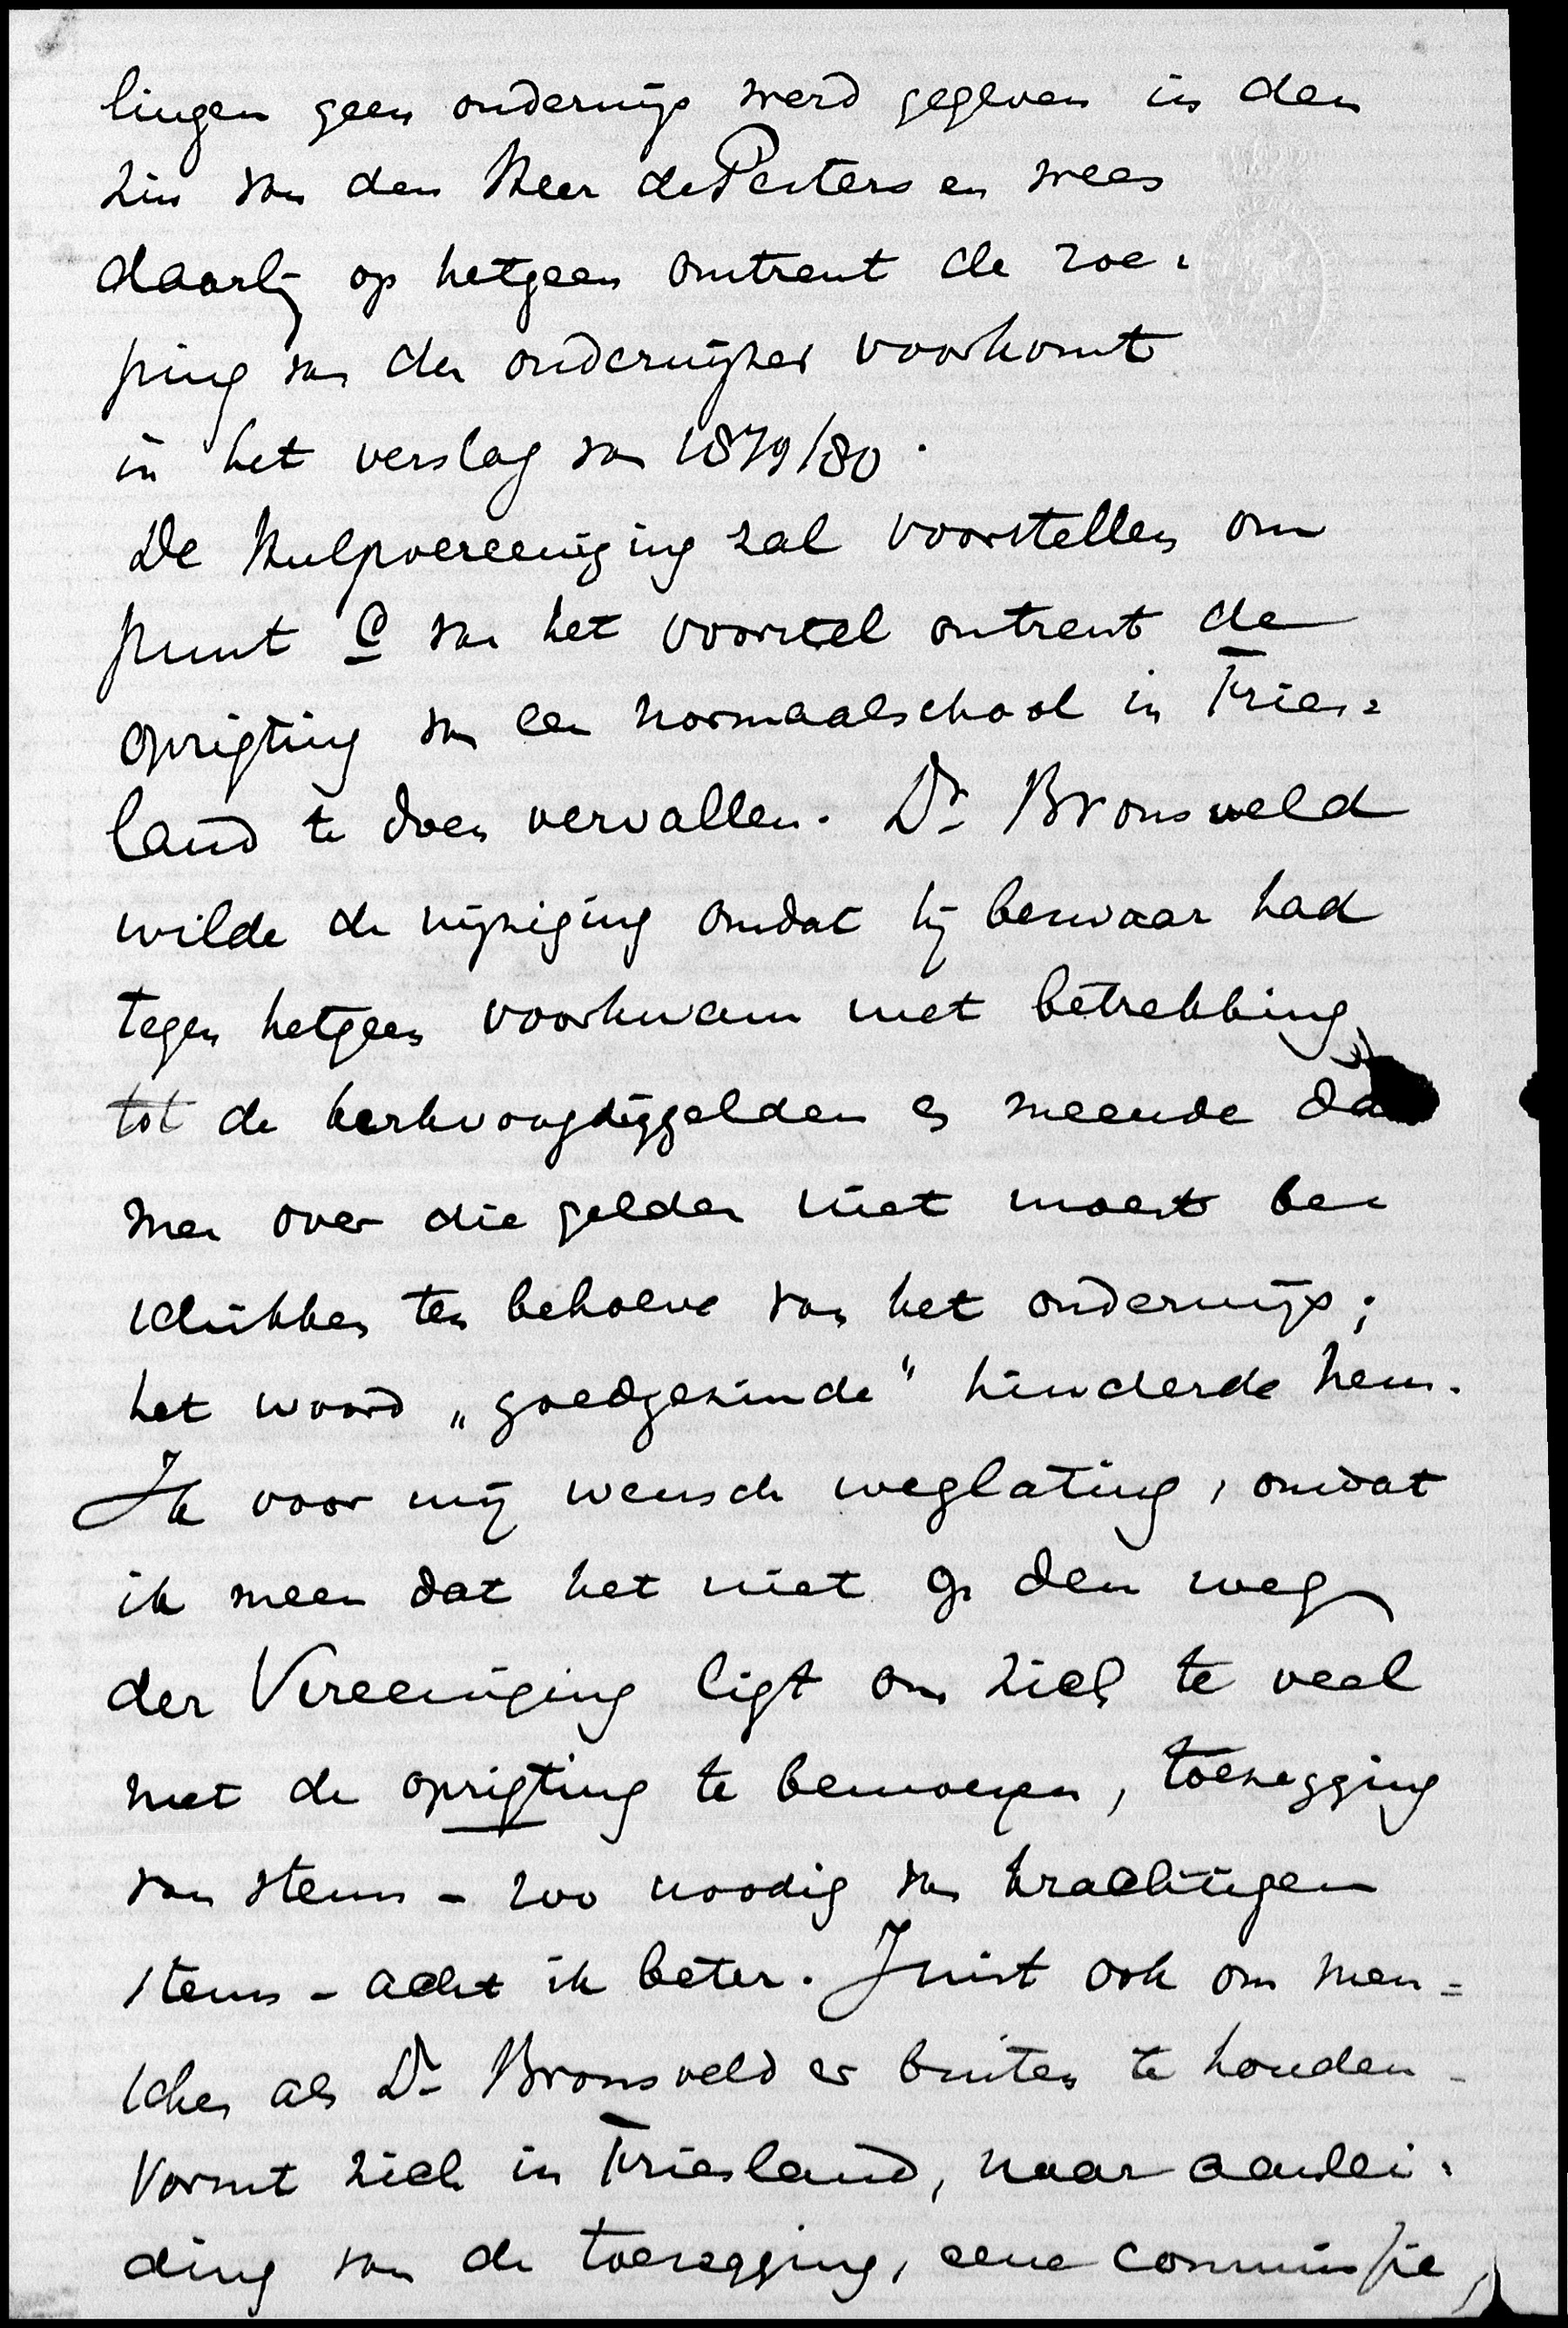 lingen geen onderwijs werd gegeven in den
zin van den Heer de Pesters en wees
daarbij op hetgeen omtrent de roe-
ping van den onderwijzer voorkomt
in het verslag van 1879/80.
De Hulpvereeniging zal voorstellen om
punt C van het voorstel omtrent de
oprigting van een Normaalschool in Fries=
land te doen vervallen. Dr Bronsveld
wilde de wijziging omdat hij bezwaar had
tegen hetgeen voorkwam met betrekking
tot de kerkvoogdijgelden en meende da
men over die gelden niet moest be-
schikken ten behoeve van het onderwijs;
het woord „goedgezinde" hinderde hem.
Ik voor mij wensch weglating, omdat
ik meen dat het niet op den weg
der Vereeniging ligt om zich te veel
met de oprigting te bemoeyen, toezegging
van steun - zoo noodig van krachtigen
steun - acht ik beter. Juist ook om men=
schen als Dr Bronsveld er buiten te houden -
Vormt zich in Friesland, naar aanlei-
ding van de toezegging, eene commissie,